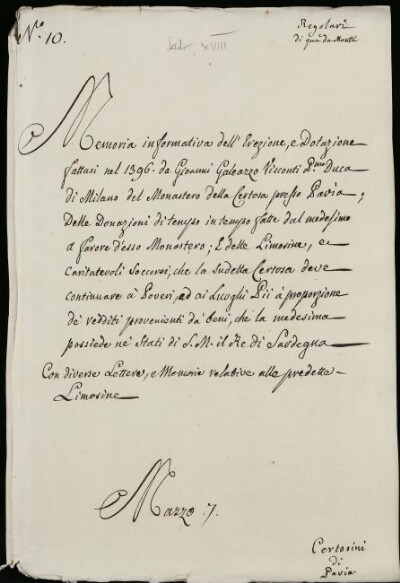 N.º 10.
Regolari
di quà da Monti
Sec. XVIII
Memoria informativa dell'Erezione, e Dotazione
fattasi nel 1396. da Gioanni Galeazzo Visconti P.mo Duca
di Milano del Monastero della Certosa presso Pavia;
Delle Donazioni di tempo in tempo fatte dal medesimo
a favore d'esso Monastero; E delle Limosine, e
caritatevoli Soccorsi, che la sudetta Certosa deve
continuare a' Poveri, ed ai Luoghi Pii à proporzione
de' redditi provenienti da' beni, che la medesima
possiede ne' Stati di S.M. il Re di Sardegna
Con diverse Lettere, e Memorie relative alle predette
Limosine
Mazzo 7.
Certosini
di
Pavia